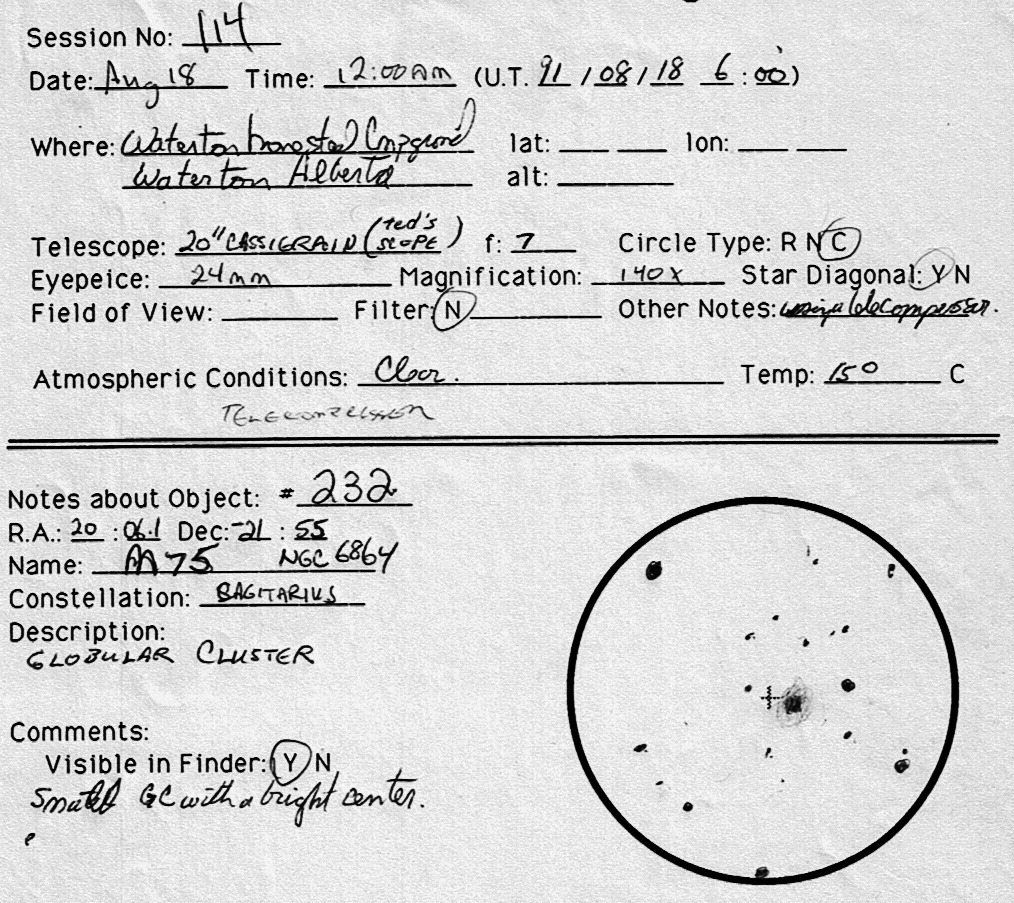 Session No: 114
Date: Aug 18 Time: 12:00 am (U.T. 91 / 08 / 18 6 : 00)
Where: Waterton Campground lat: ___ ___ lon: ___ ___
Waterton Alberta alt: ___
Telescope: 20" CASSIGRAIN (ted's SCOPE) f: 7 Circle Type: R N C
Eyepeice: 24mm Magnification: 140X Star Diagonal: Y N
Field of View: ___ Filter: N ___ Other Notes: using telecompressor.
Atmospheric Conditions: Clear. Temp: 15° C
Notes about Object: # 232
R.A.: 20 : 06.1 Dec: -21 : 55
Name: M 75 NGC 6864
Constellation: SAGITARIUS
Description:
GLOBULAR CLUSTER
Comments:
Visible in Finder: Y N
Small GC with a bright center.